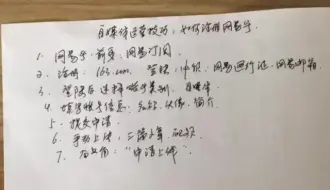 自媒体运营技巧：如何注册网易号
1. 网易号.前身.网易订阅
2. 注册.163.com, 登陆.中心.网易通行证.网易邮箱
3. 登陆后选择账号类别.自媒体
4. 填写账号信息.名称.头像.简介
5. 提交申请
6. 手机上传.二维码
7. 右上角："申请上线"